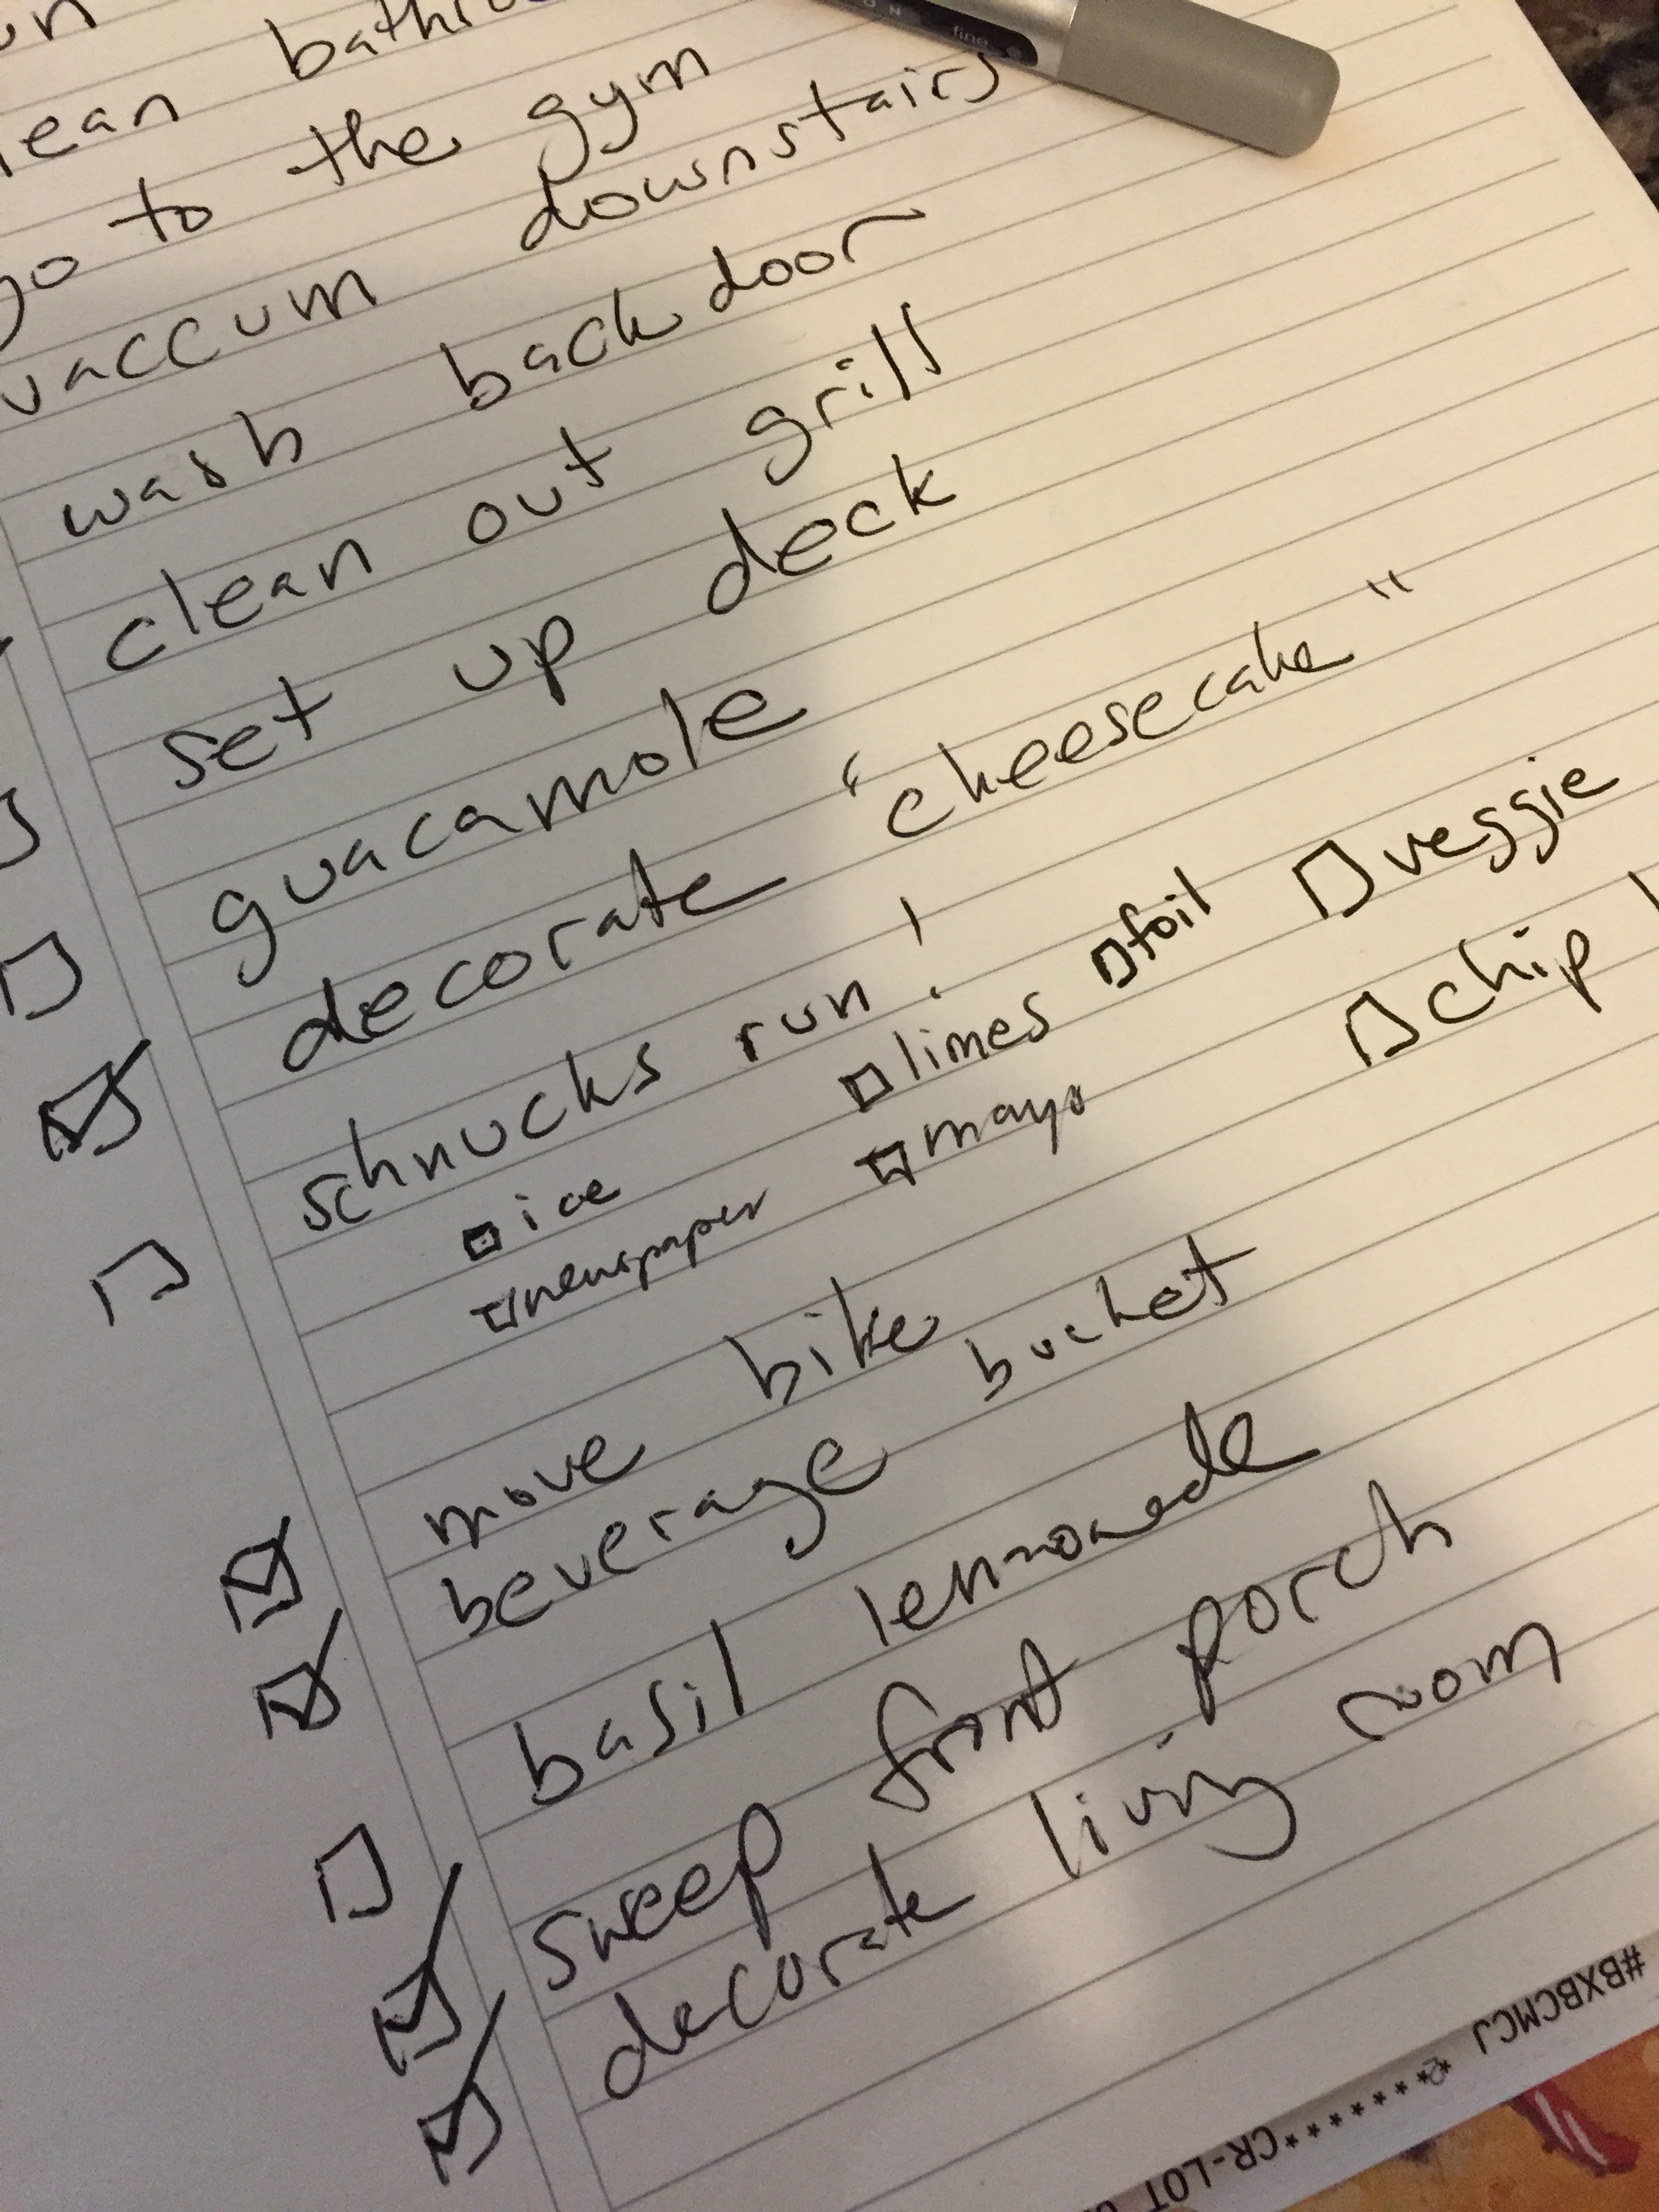 bath
to the gym
vaccum downstairs
wash back door
clean out grill
set up deck
guacamole
decorate "cheesecake"
schnucks run!
ice limes foil veggie
newspaper mayo chip
move bike
beverage bucket
basil lemonade
sweep front porch
decorate living room
fine
#BXBCMCJ
*******CR-LOT